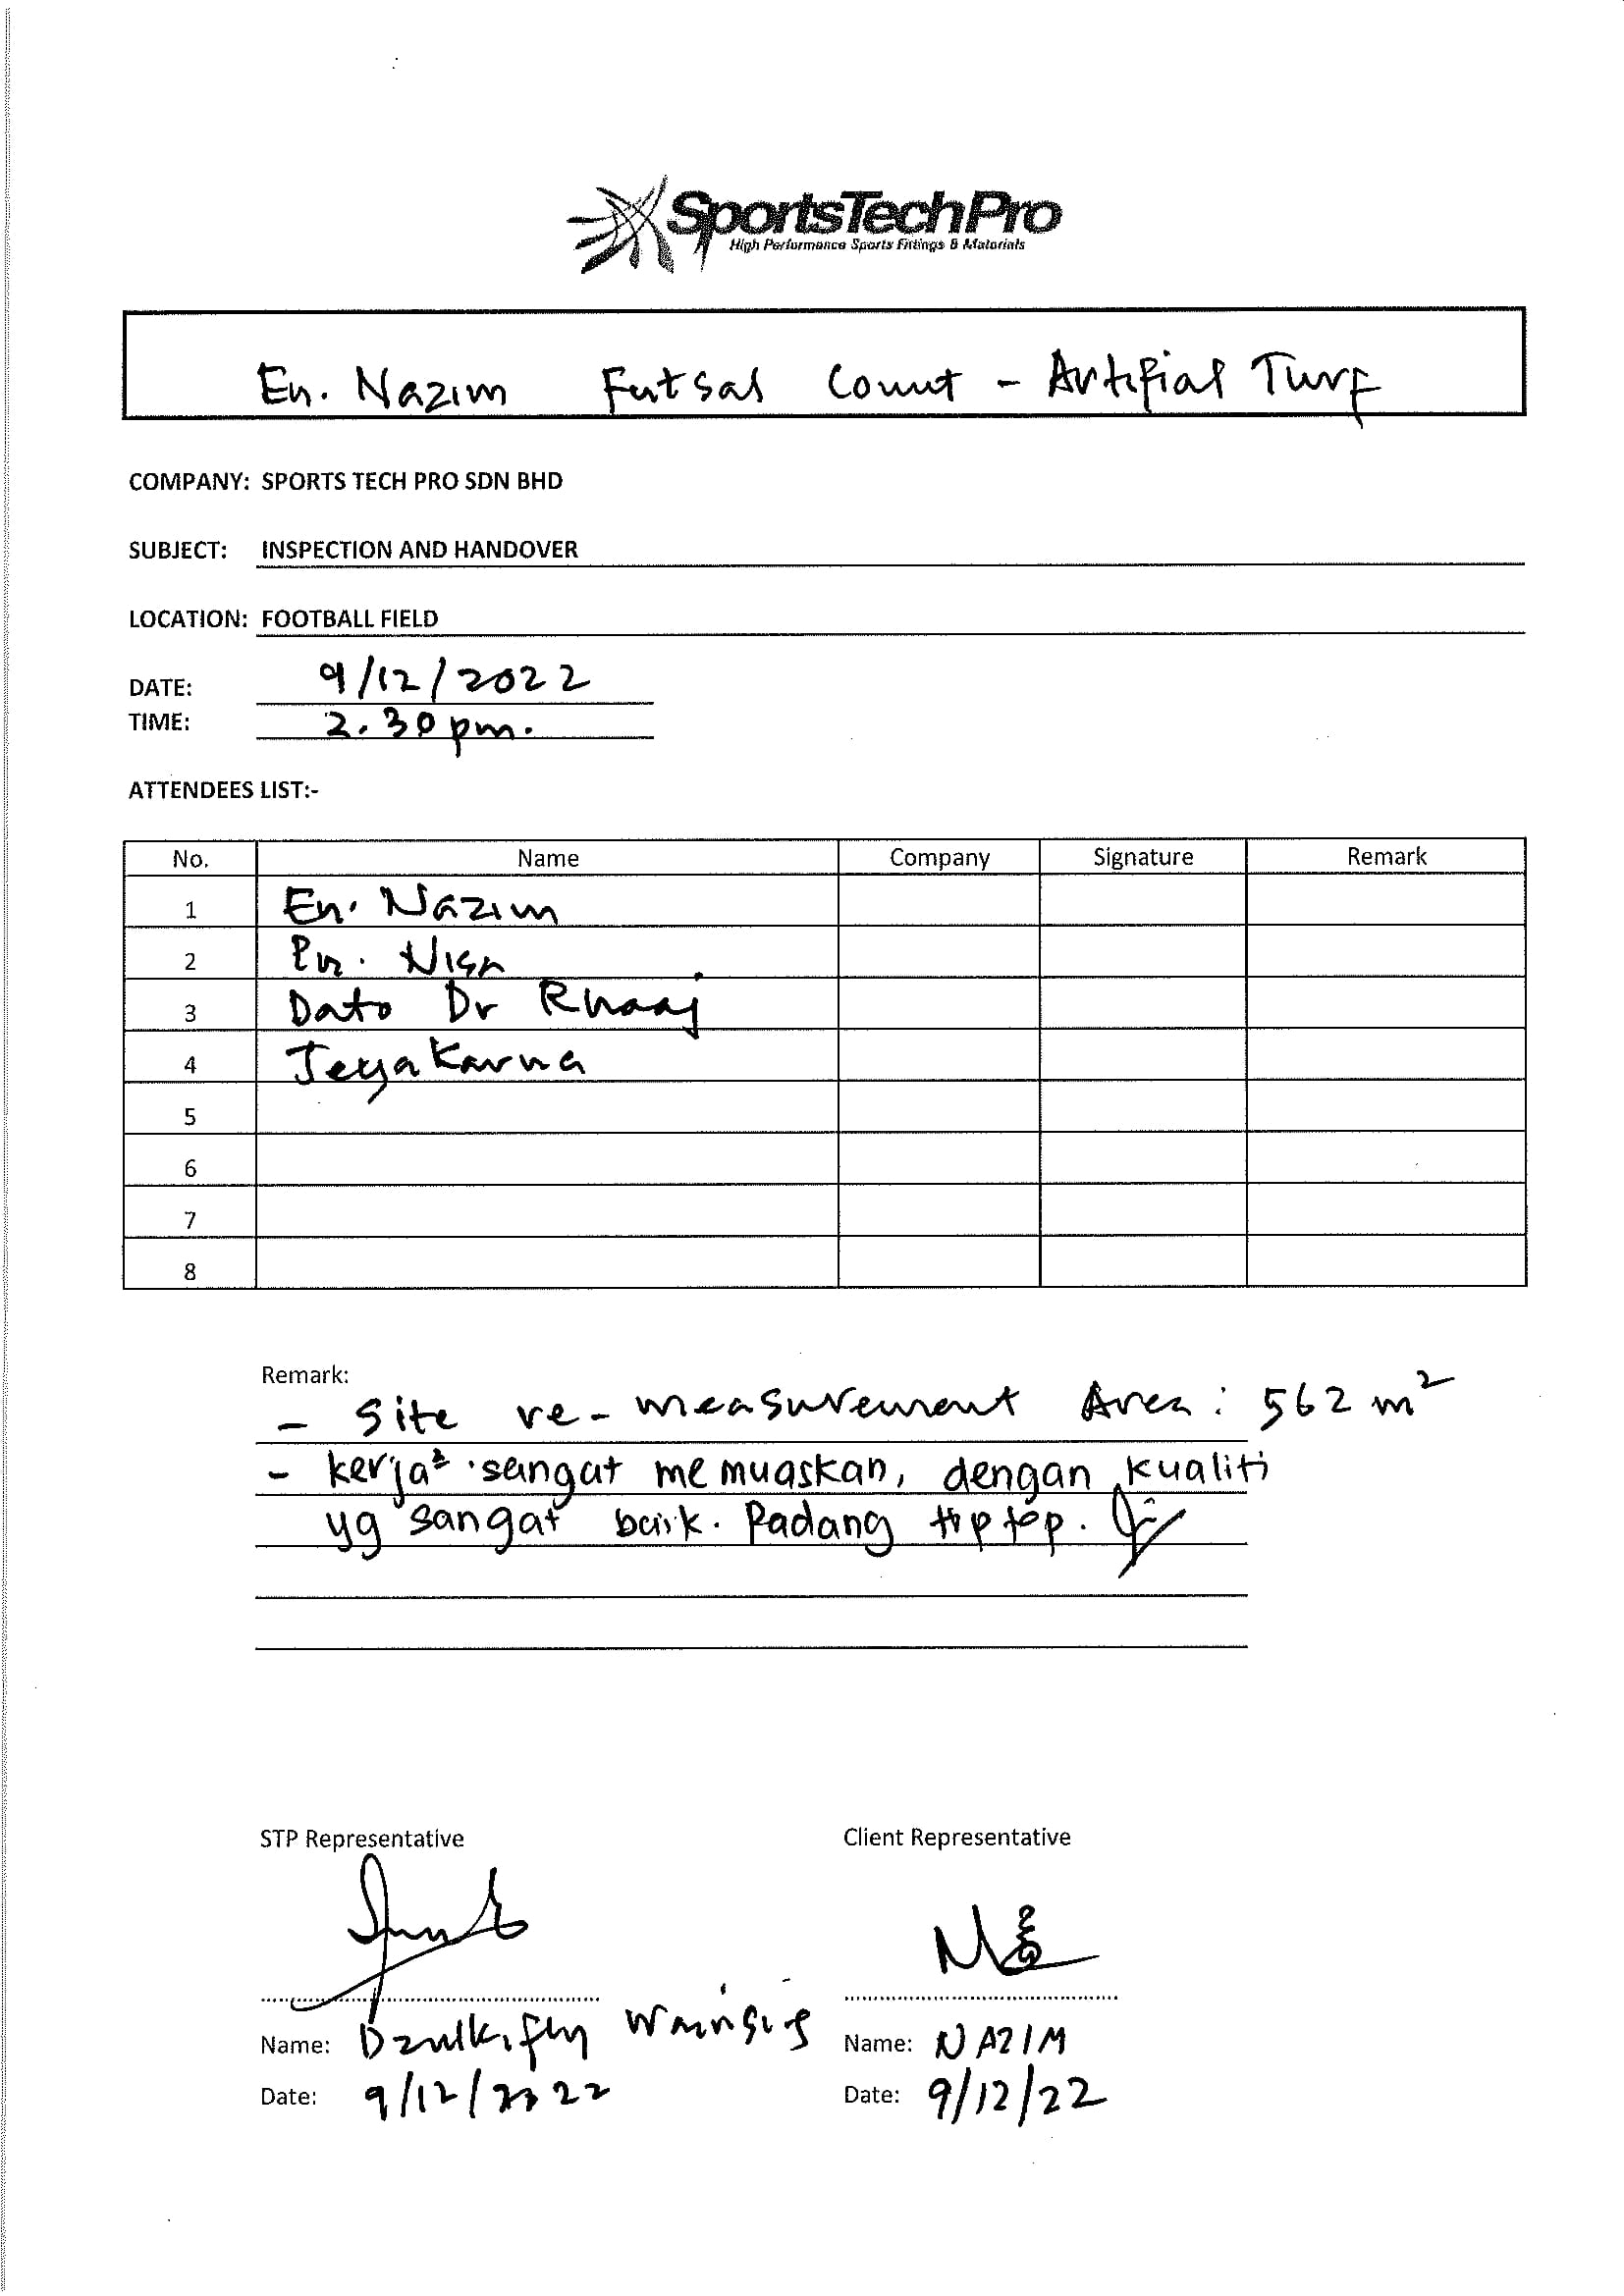 SportsTechPro
High Performance Sports Fittings & Materials
En. Nazim Futsal Court - Artifial Turf
COMPANY: SPORTS TECH PRO SDN BHD
SUBJECT: INSPECTION AND HANDOVER
LOCATION: FOOTBALL FIELD
DATE: 9/12/2022
TIME: 2.30 pm.
ATTENDEES LIST:-
No. Name Company Signature Remark
1 En. Nazim
2 Pn. Nisa
3 Dato Dr Rhaaj
4 Jeyakarna
5
6
7
8
Remark:
- Site re-measurement Area: 562 m²
- kerja² sangat memuaskan, dengan kualiti
yg sangat baik. Padang tip top.
STP Representative Client Representative
Name: Dzulkifly Name: NAZIM
Date: 9/12/2022 Date: 9/12/22